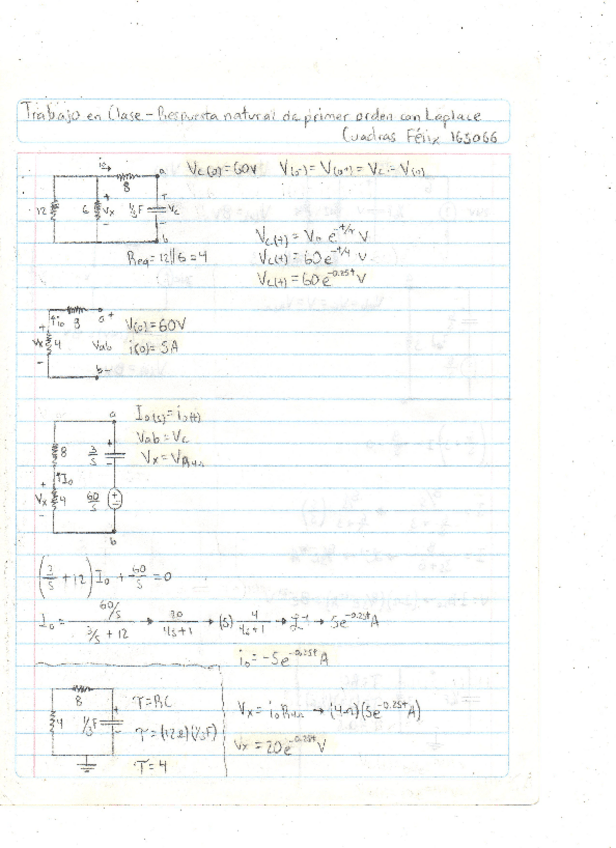 Trabajo en Clase - Respuesta natural de primer orden con Laplace
Cuadras Félix 165066
Vc(0)=60V V(0-)=V(0+)=Vc=V(0)
8
a
12
6
Vx
1/3F
Vc
b
Req=12||6=4
Vc(t)=V0 e^-t/τ V
Vc(t)=60e^-t/4 V
Vc(t)=60e^-0.25t V
io
8
a
V(0)=60V
Vx
4
Vab
i(0)=5A
b
a
I0(s)=i0(t)
Vab=Vc
Vx=VR4Ω
8
3/s
I0
Vx
4
60/s
b
(3/s+12)I0+60/s=0
I0= 60/s / 3/s+12 → 20/4s+1 → (5) 4/4s+1 → L^-1 → 5e^-0.25t A
i0=-5e^-0.25t A
8
4
1/3F
τ=RC
τ=(12Ω)(1/3F)
τ=4
Vx=i0R4Ω → (4Ω)(5e^-0.25t A)
Vx=20e^-0.25t V